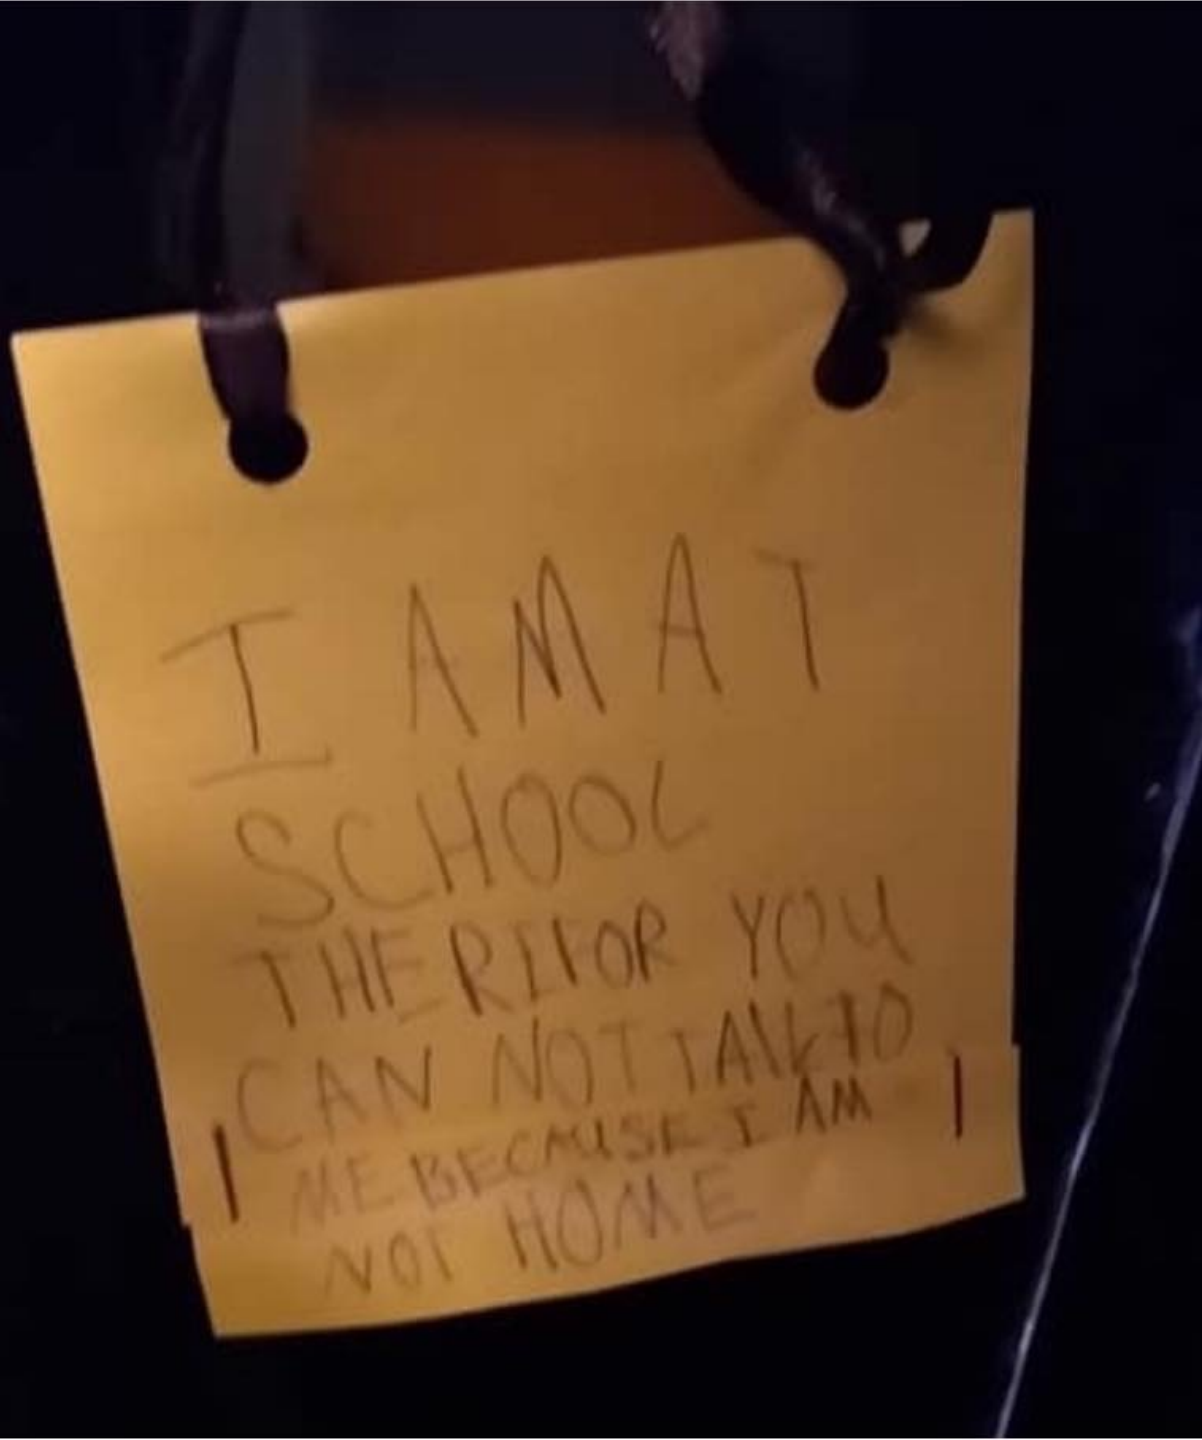 I AM AT
SCHOOL
THERIFOR YOU
CAN NOT TALK TO
ME BECAUSE I AM
NOT HOME